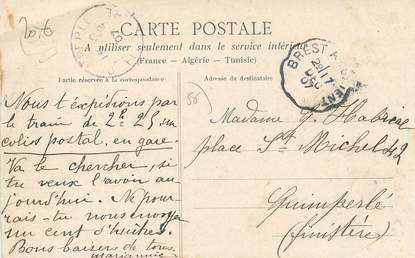 CARTE POSTALE
A utiliser seulement dans le service intérieur
(France - Algérie - Tunisie)
Partie réservée à la correspondance
Adresse du destinataire
Nous t'expédions par
le train de 2h 25, un
colis postal, en gare.
Va le chercher, si
tu veux l'avoir au-
jourd'hui. Ne pour-
rais-tu nous envoyer
un cent d'huîtres.
Bons baisers de tous.
Madame
place St Michel
Quimperlé
(finistère)
BREST A